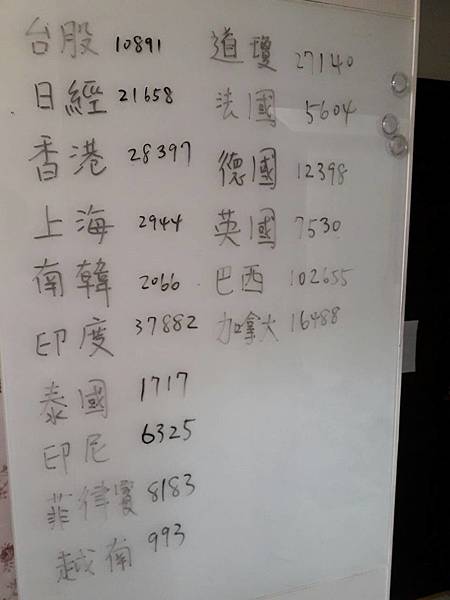 台股 10891
日經 21658
香港 28397
上海 2944
南韓 2066
印度 37882
泰國 1717
印尼 6325
菲律賓 8183
越南 993
道瓊 27140
法國 5604
德國 12398
英國 7530
巴西 102655
加拿大 16488